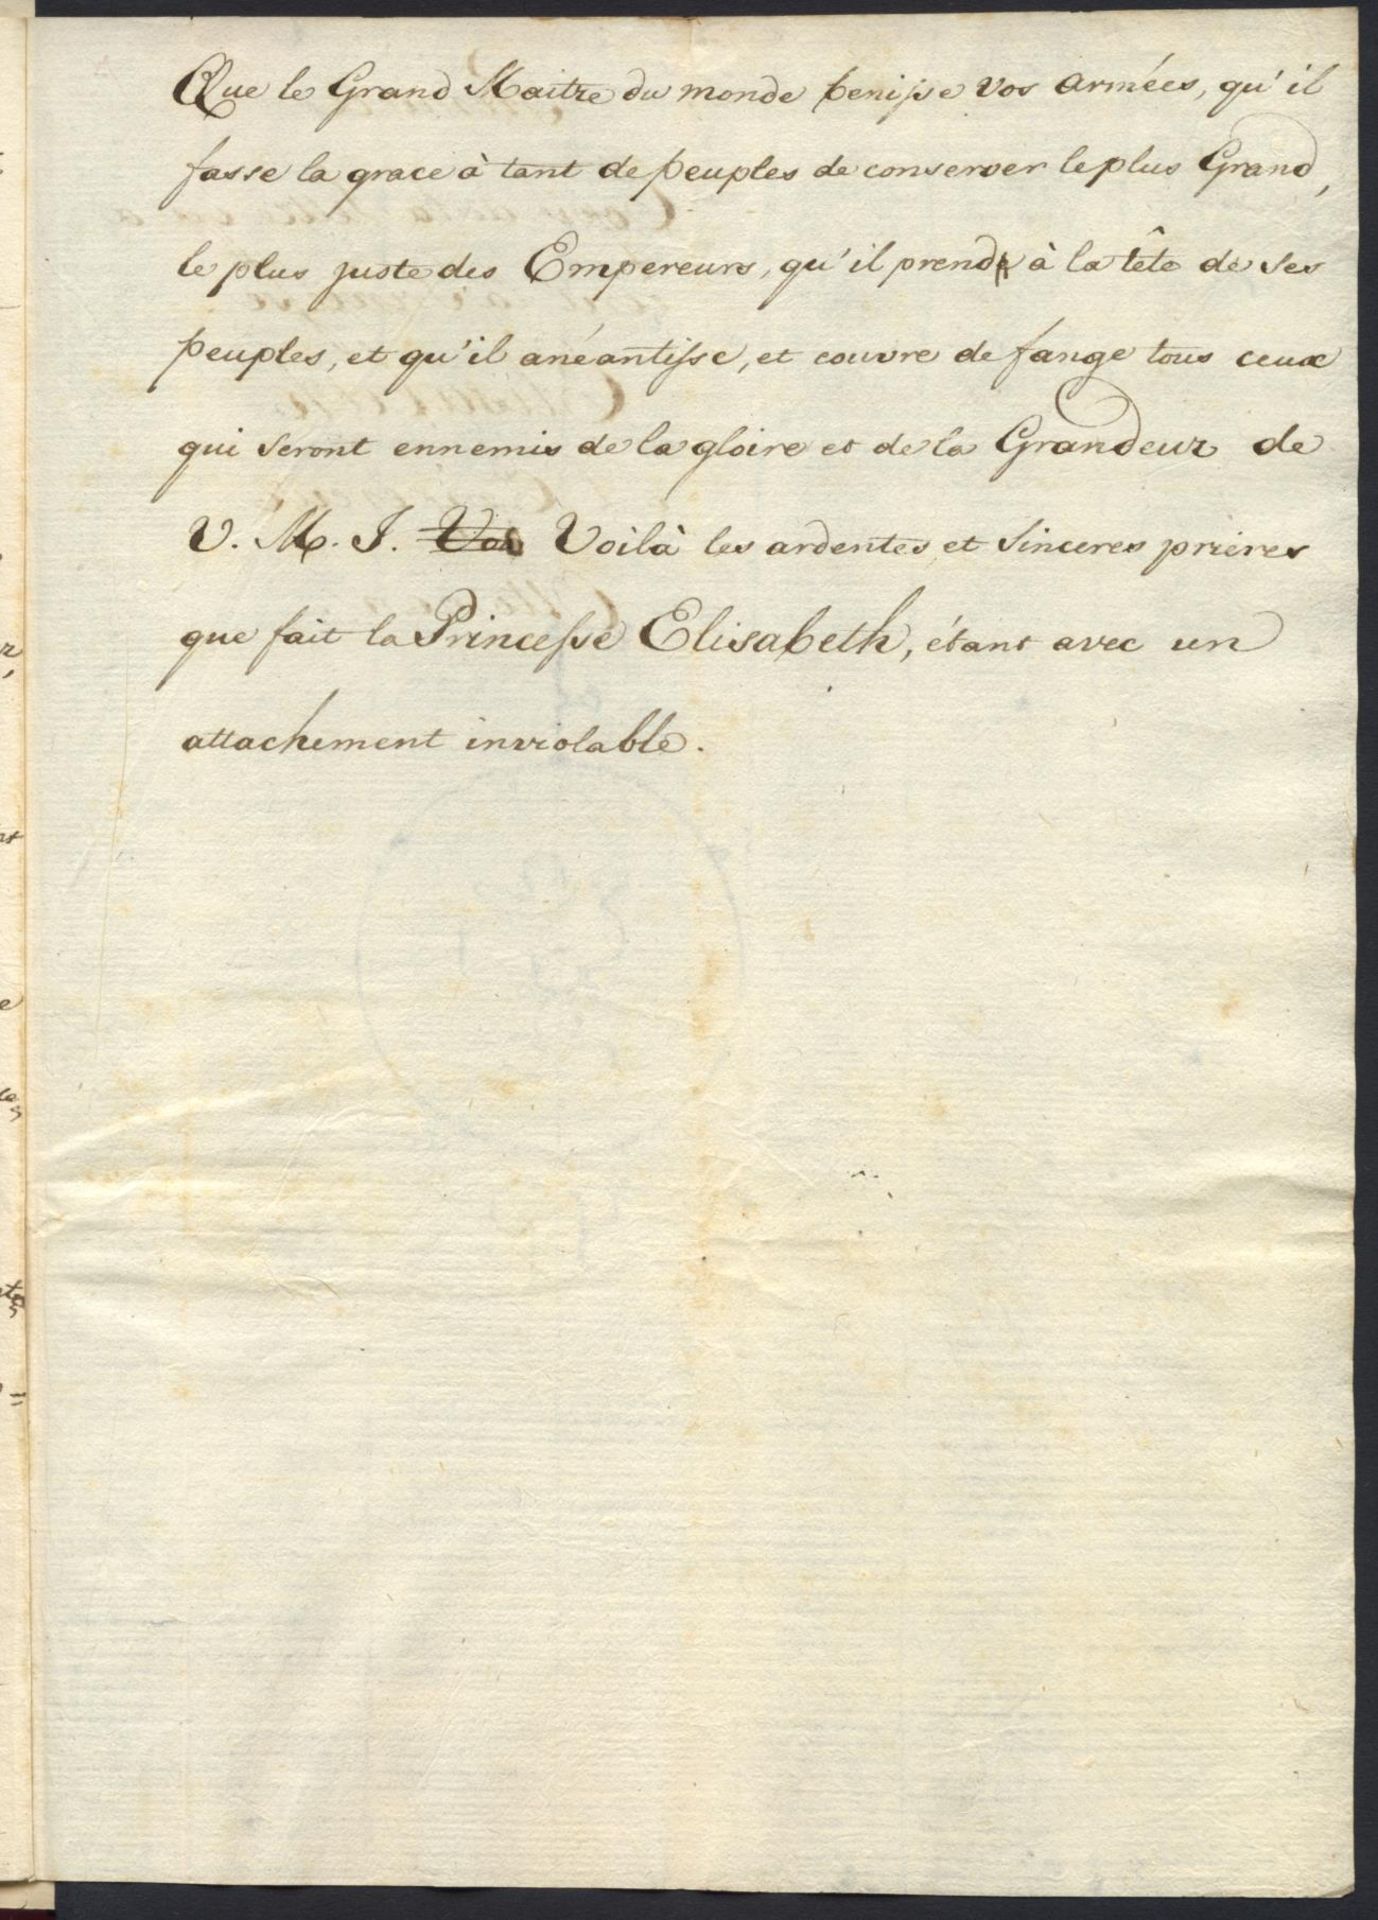 Que le Grand Maitre du monde benisse vos armées, qu'il
fasse la grace à tant de peuples de conserver le plus Grand,
le plus juste des Empereurs, qu'il prend à la tête de ses
peuples, et qu'il anéantisse, et couvre de fange tous ceux
qui seront ennemis de la gloire et de la Grandeur de
V. M. I. Voilà les ardentes et sinceres prieres
que fait la Princesse Elisabeth, étant avec un
attachement inviolable.